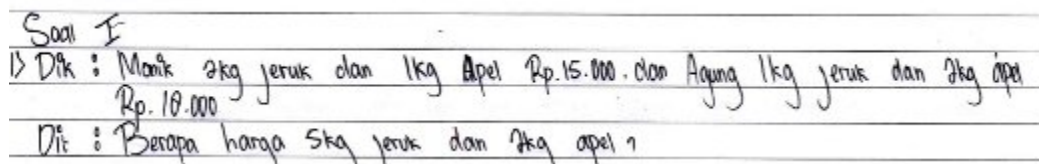 Soal I
1) Dik : Monik 2kg jeruk dan 1kg Apel Rp.15.000. dan Agung 1kg jeruk dan 2kg apel
Rp. 18.000
Dit : Berapa harga 5kg jeruk dan 2kg apel ?